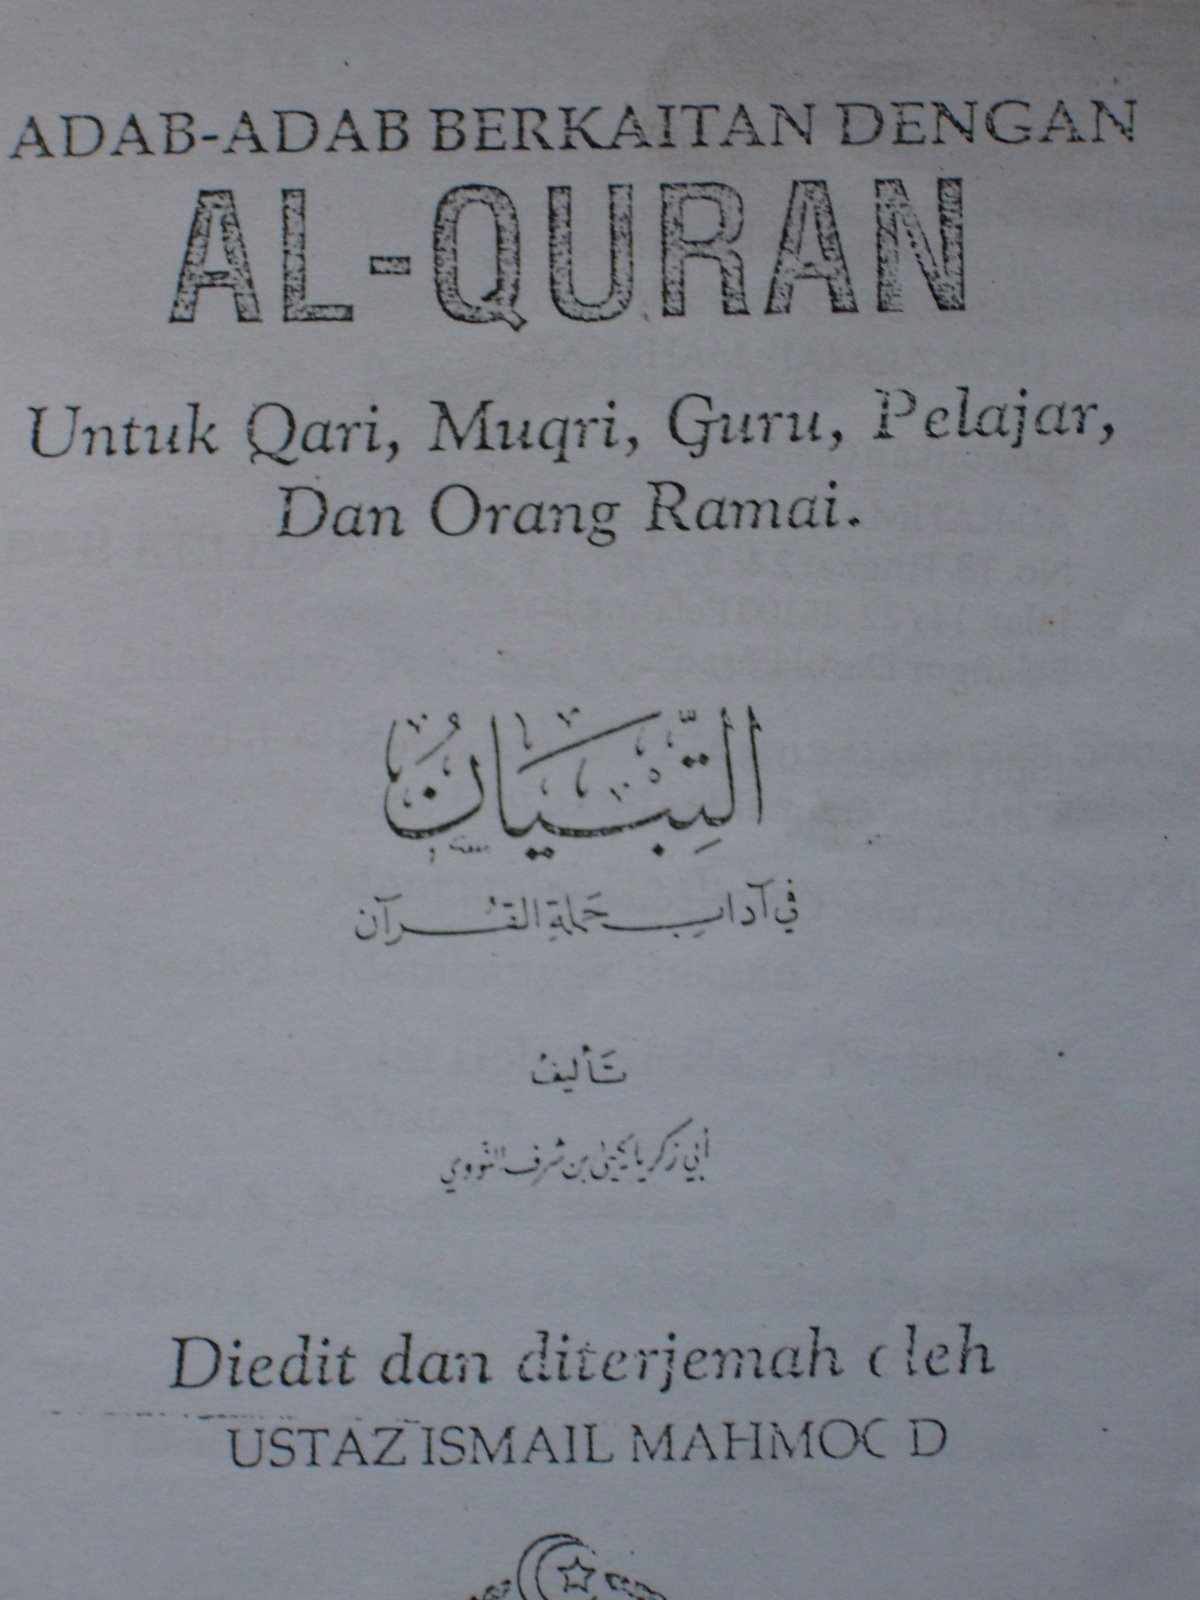 ADAB-ADAB BERKAITAN DENGAN
AL-QURAN
Untuk Qari, Muqri, Guru, Pelajar,
Dan Orang Ramai.
التِّبْيَانُ
في آدابِ حَملةِ القُرآن
تَأليفُ
أبي زكريا يحيى بن شرف النووي
Diedit dan diterjemah oleh
USTAZ ISMAIL MAHMOOD